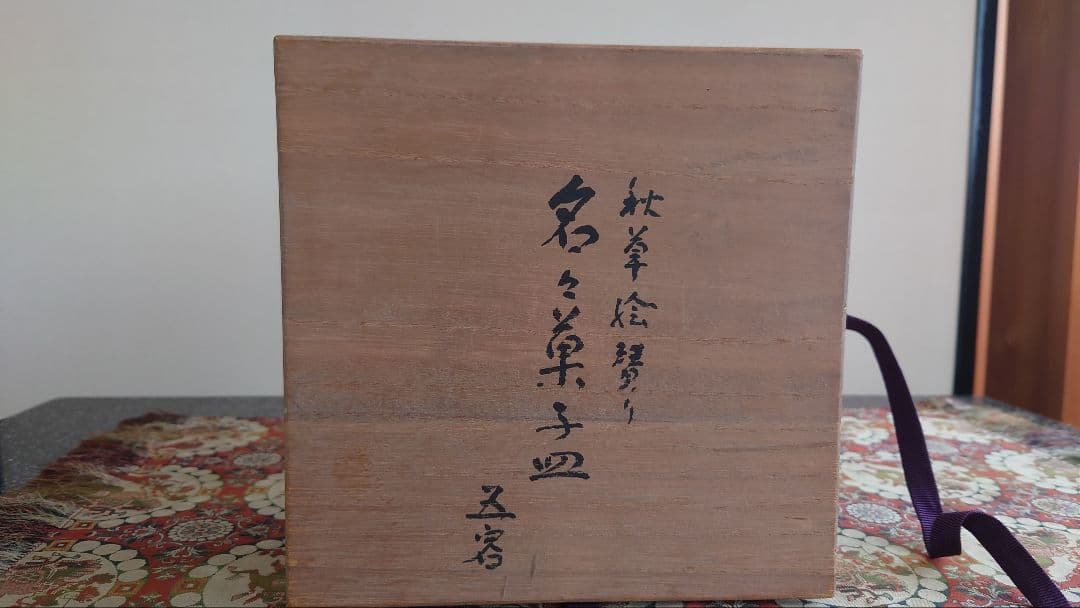 秋草絵替り
名々菓子皿
五客